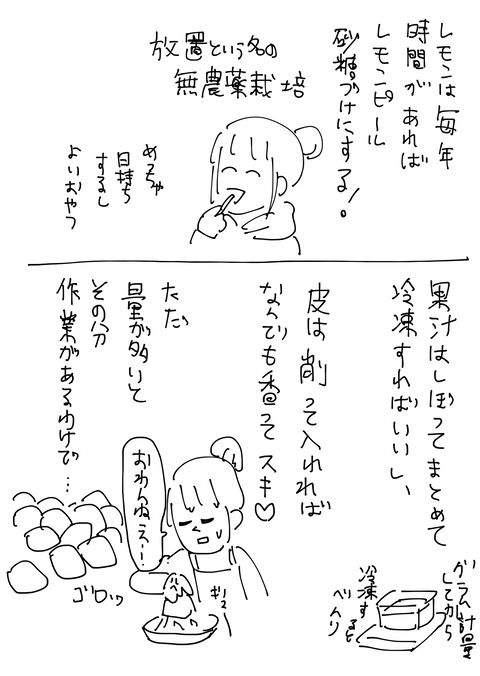 レモンは毎年
時間があれば
レモンピール
砂糖づけにする!。
放置という名の
無農薬栽培
めちゃ
日持ち
するし
よいおやつ
果汁はしぼってまとめて
冷凍すればいいし、
皮は削って入れれば
なんでも香ってスキ♡
ただ
量が多いと
その分
作業があるわけで…
おわんねぇー
ゴロッ
ギュ
グラム計量
してから
冷凍す
ると
べんり